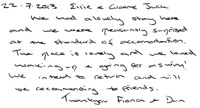 22.9.2013 Ellie & Graeme Jack
We had a lovely stay here
and we were pleasantly surprised
at the standard of accomodation.
The place is lovely and we loved
waking-up & going for a swim!
We intend to return and will
be recommending to friends.
Thankyou Fiona & Dan